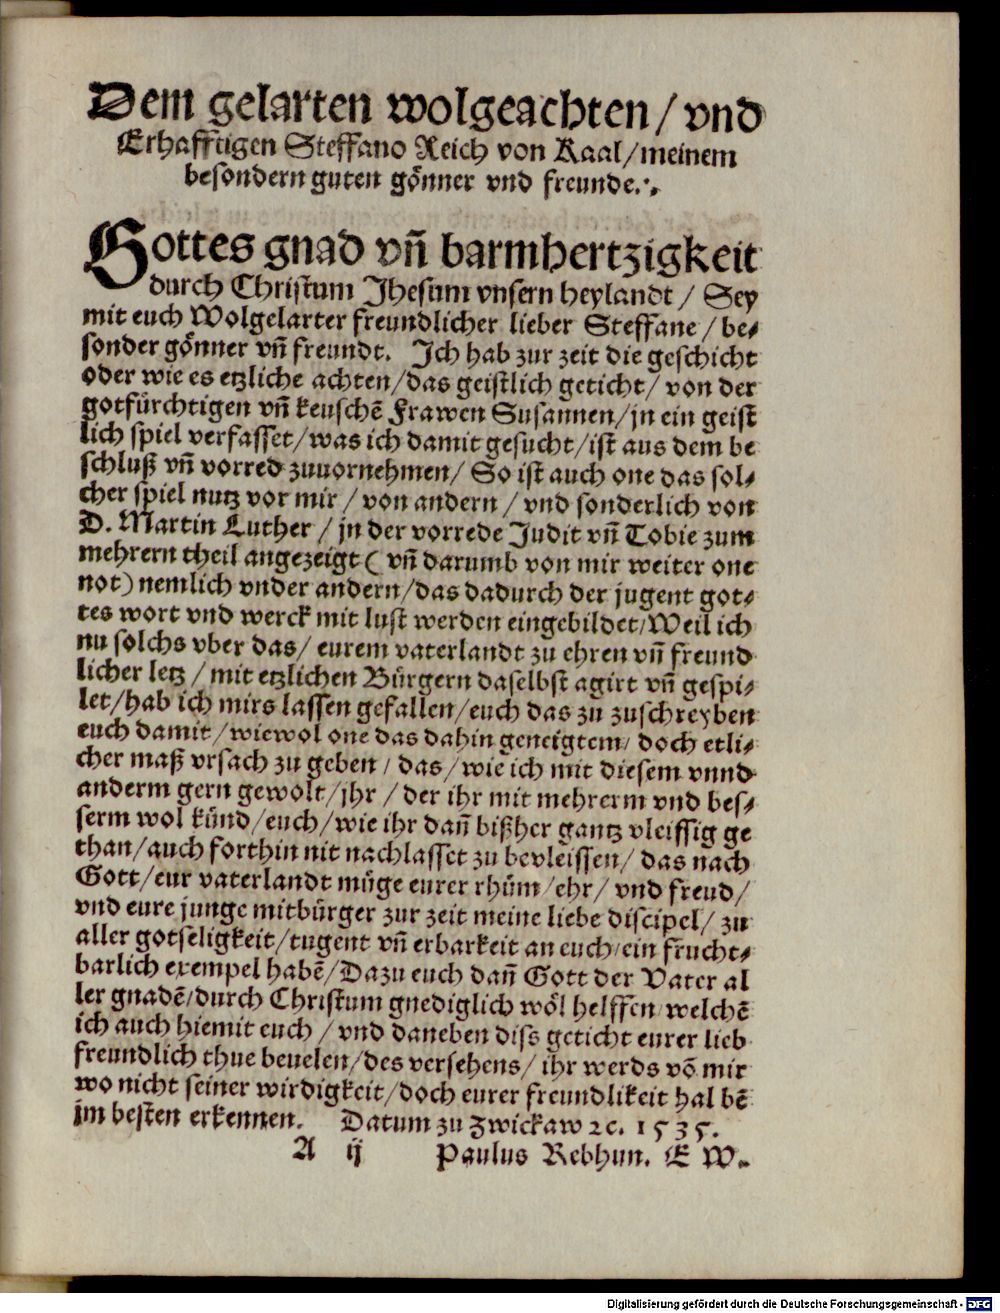 Dem gelarten wolgeachten / vnd
Erhafftigen Steffano Reich von Kaal / meinem
besondern guten gönner vnd freunde.
Gottes gnad vñ barmhertzigkeit
durch Christum Jhesum vnsern heylandt / Sey
mit euch Wolgelarter freundlicher lieber Steffane / be-
sonder gönner vñ freundt. Ich hab zur zeit die geschicht
oder wie es etzliche achten / das geistlich geticht / von der
gotfürchtigen vñ keuschē Frawen Susannen / jn ein geist
lich spiel verfasset / was ich damit gesucht / ist aus dem be
schluß vñ vorred zuuornehmen / So ist auch one das sol-
cher spiel nutz vor mir / von andern / vnd sonderlich von
D. Martin Luther / jn der vorrede Judit vñ Tobie zum
mehrern theil angezeigt ( vñ darumb von mir weiter one
not) nemlich vnder andern / das dadurch der jugent got-
tes wort vnd werck mit lust werden eingebildet / Weil ich
nu solchs vber das / eurem vaterlandt zu ehren vñ freund
licher letz / mit etzlichen Bürgern daselbst agirt vñ gespi-
let / hab ich mirs lassen gefallen / euch das zu zuschreyben
euch damit / wiewol one das dahin geneigtem / doch etli-
cher maß vrsach zu geben / das / wie ich mit diesem vnnd
anderm gern gewolt / jhr / der ihr mit mehrerm vnd bes-
serm wol künd / euch / wie ihr dañ bißher gantz vleissig ge
than / auch forthin nit nachlasset zu bevleissen / das nach
Gott / eur vaterlandt müge eurer rhüm / ehr / vnd freud /
vnd eure junge mitbürger zur zeit meine liebe discipel / zu
aller gotseligkeit / tugent vñ erbarkeit an euch / ein frucht-
barlich exempel habē / Dazu euch dañ Gott der Vater al
ler gnadē / durch Christum gnediglich wöl helffen / welchē
ich auch hiemit euch / vnd daneben diss geticht eurer lieb
freundlich thue beuelen / des versehens / ihr werds vō mir
wo nicht seiner wirdigkeit / doch eurer freundlikeit hal bē
im besten erkennen. Datum zu Zwickaw ꝛc. 1535.
A ij Paulus Rebhun. E W.
Digitalisierung gefördert durch die Deutsche Forschungsgemeinschaft - DFG